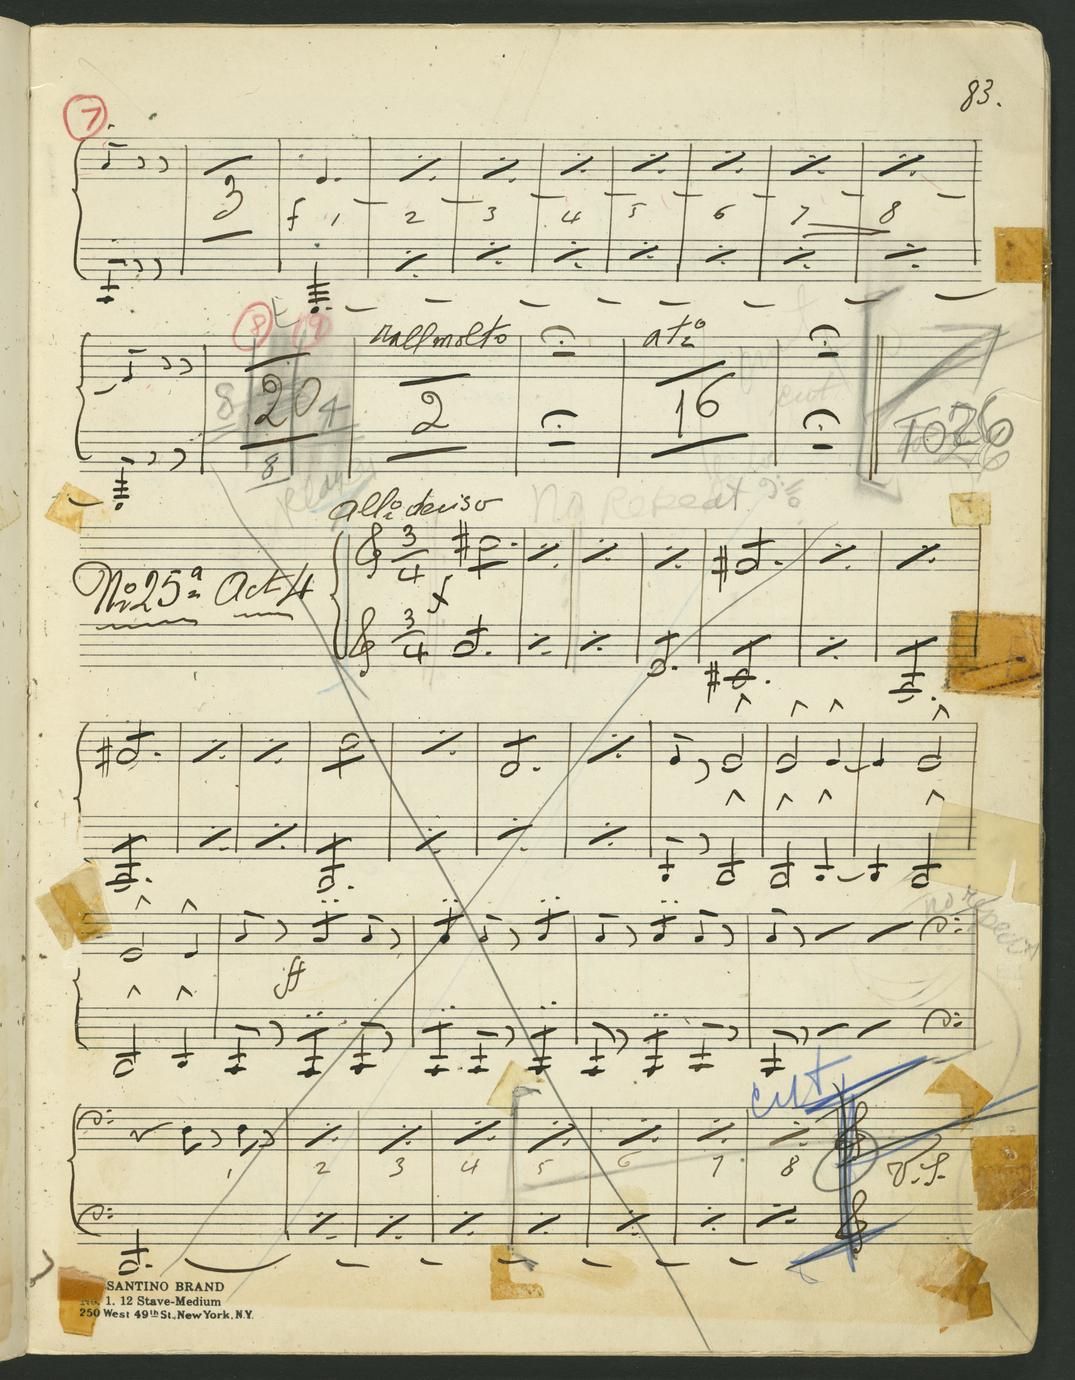 83.
7
3 f 1 2 3 4 5 6 7 8
8 9
rall molto
8 20 4 2 16
8
cut
TO 26
No Repeat
No 25a Act 4
3 4 f
3 4
no repeat
ff
cut
1 2 3 4 5 6 7 8 V.S.
SANTINO BRAND
No. 1. 12 Stave-Medium
250 West 49th St., New York, N.Y.